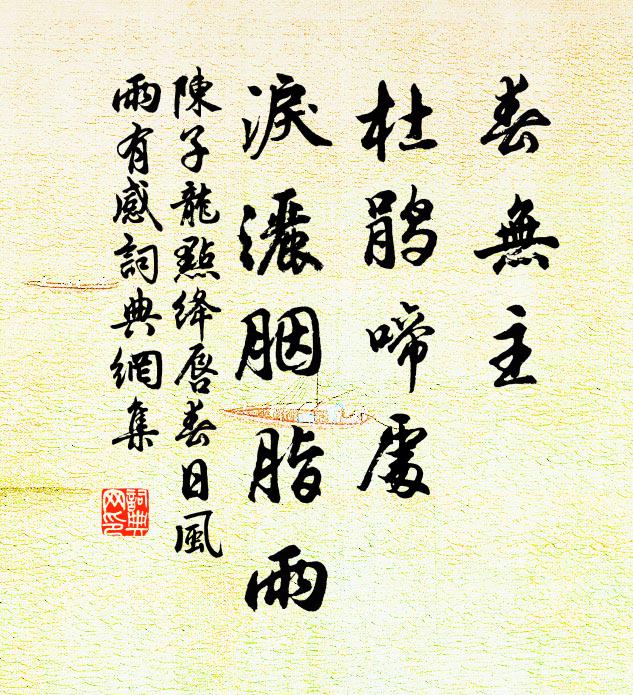 春無主
杜鵑啼處
淚灑胭脂雨
陳子龍點絳唇春日風
雨有感詞典網集
詞典
网印